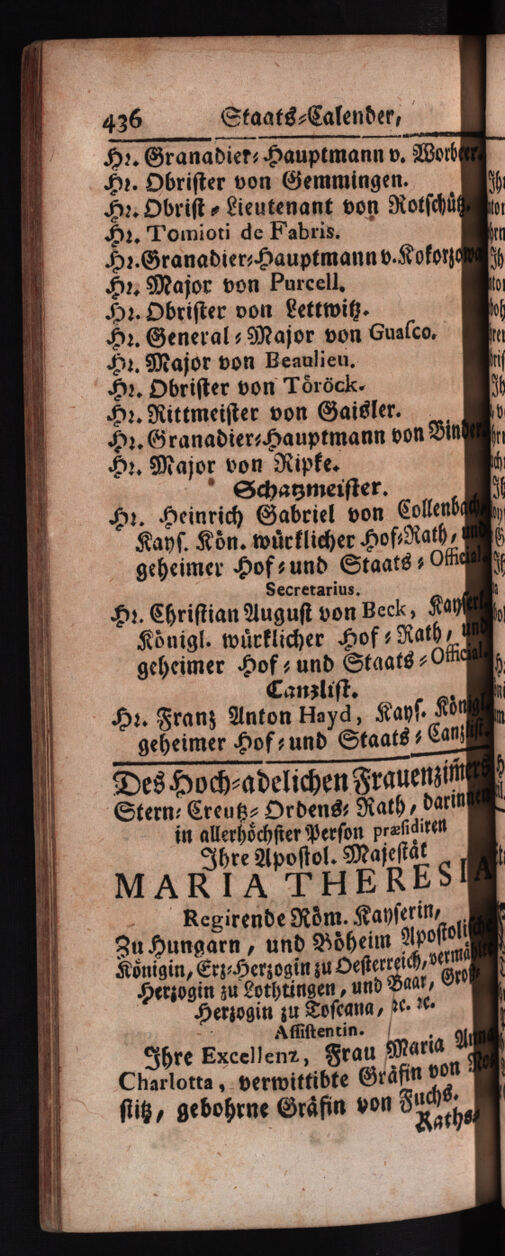 436 Staats-Calender,
Hr. Granadier-Hauptmann v. Worbeer.
Hr. Obrister von Gemmingen.
Hr. Obrist-Lieutenant von Rotschütz.
Hr. Tomioti de Fabris.
Hr. Granadier-Hauptmann v. Kokorzowa
Hr. Major von Purcell.
Hr. Obrister von Lettwitz.
Hr. General-Major von Guasco.
Hr. Major von Beaulieu.
Hr. Obrister von Töröck.
Hr. Rittmeister von Gaisler.
Hr. Granadier-Hauptmann von Binder.
Hr. Major von Ripke.
Schatzmeister.
Hr. Heinrich Gabriel von Collenbach,
Kays. Kön. würklicher Hof-Rath, und
geheimer Hof- und Staats-Official.
Secretarius.
Hr. Christian August von Beck, Kayserl.
Königl. würklicher Hof-Rath, und
geheimer Hof- und Staats-Official.
Canzlist.
Hr. Franz Anton Hayd, Kays. Königl.
geheimer Hof- und Staats-Canzlist.
Des Hoch-adelichen Frauenzim̃ers
Stern-Creutz-Ordens-Rath, darinnen
in allerhöchster Person præsidiren
Ihre Apostol. Majestät
MARIA THERESIA
Regirende Röm. Kayserin,
Zu Hungarn, und Böheim Apostolische
Königin, Erz-Herzogin zu Oesterreich, vermählte
Herzogin zu Lothtingen, und Baar, Groß-
Herzogin zu Toscana, ꝛc. ꝛc.
Assistentin.
Ihre Excellenz, Frau Maria Anna
Charlotta, verwittibte Gräfin von No-
stitz, gebohrne Gräfin von Fuchs.
Raths-